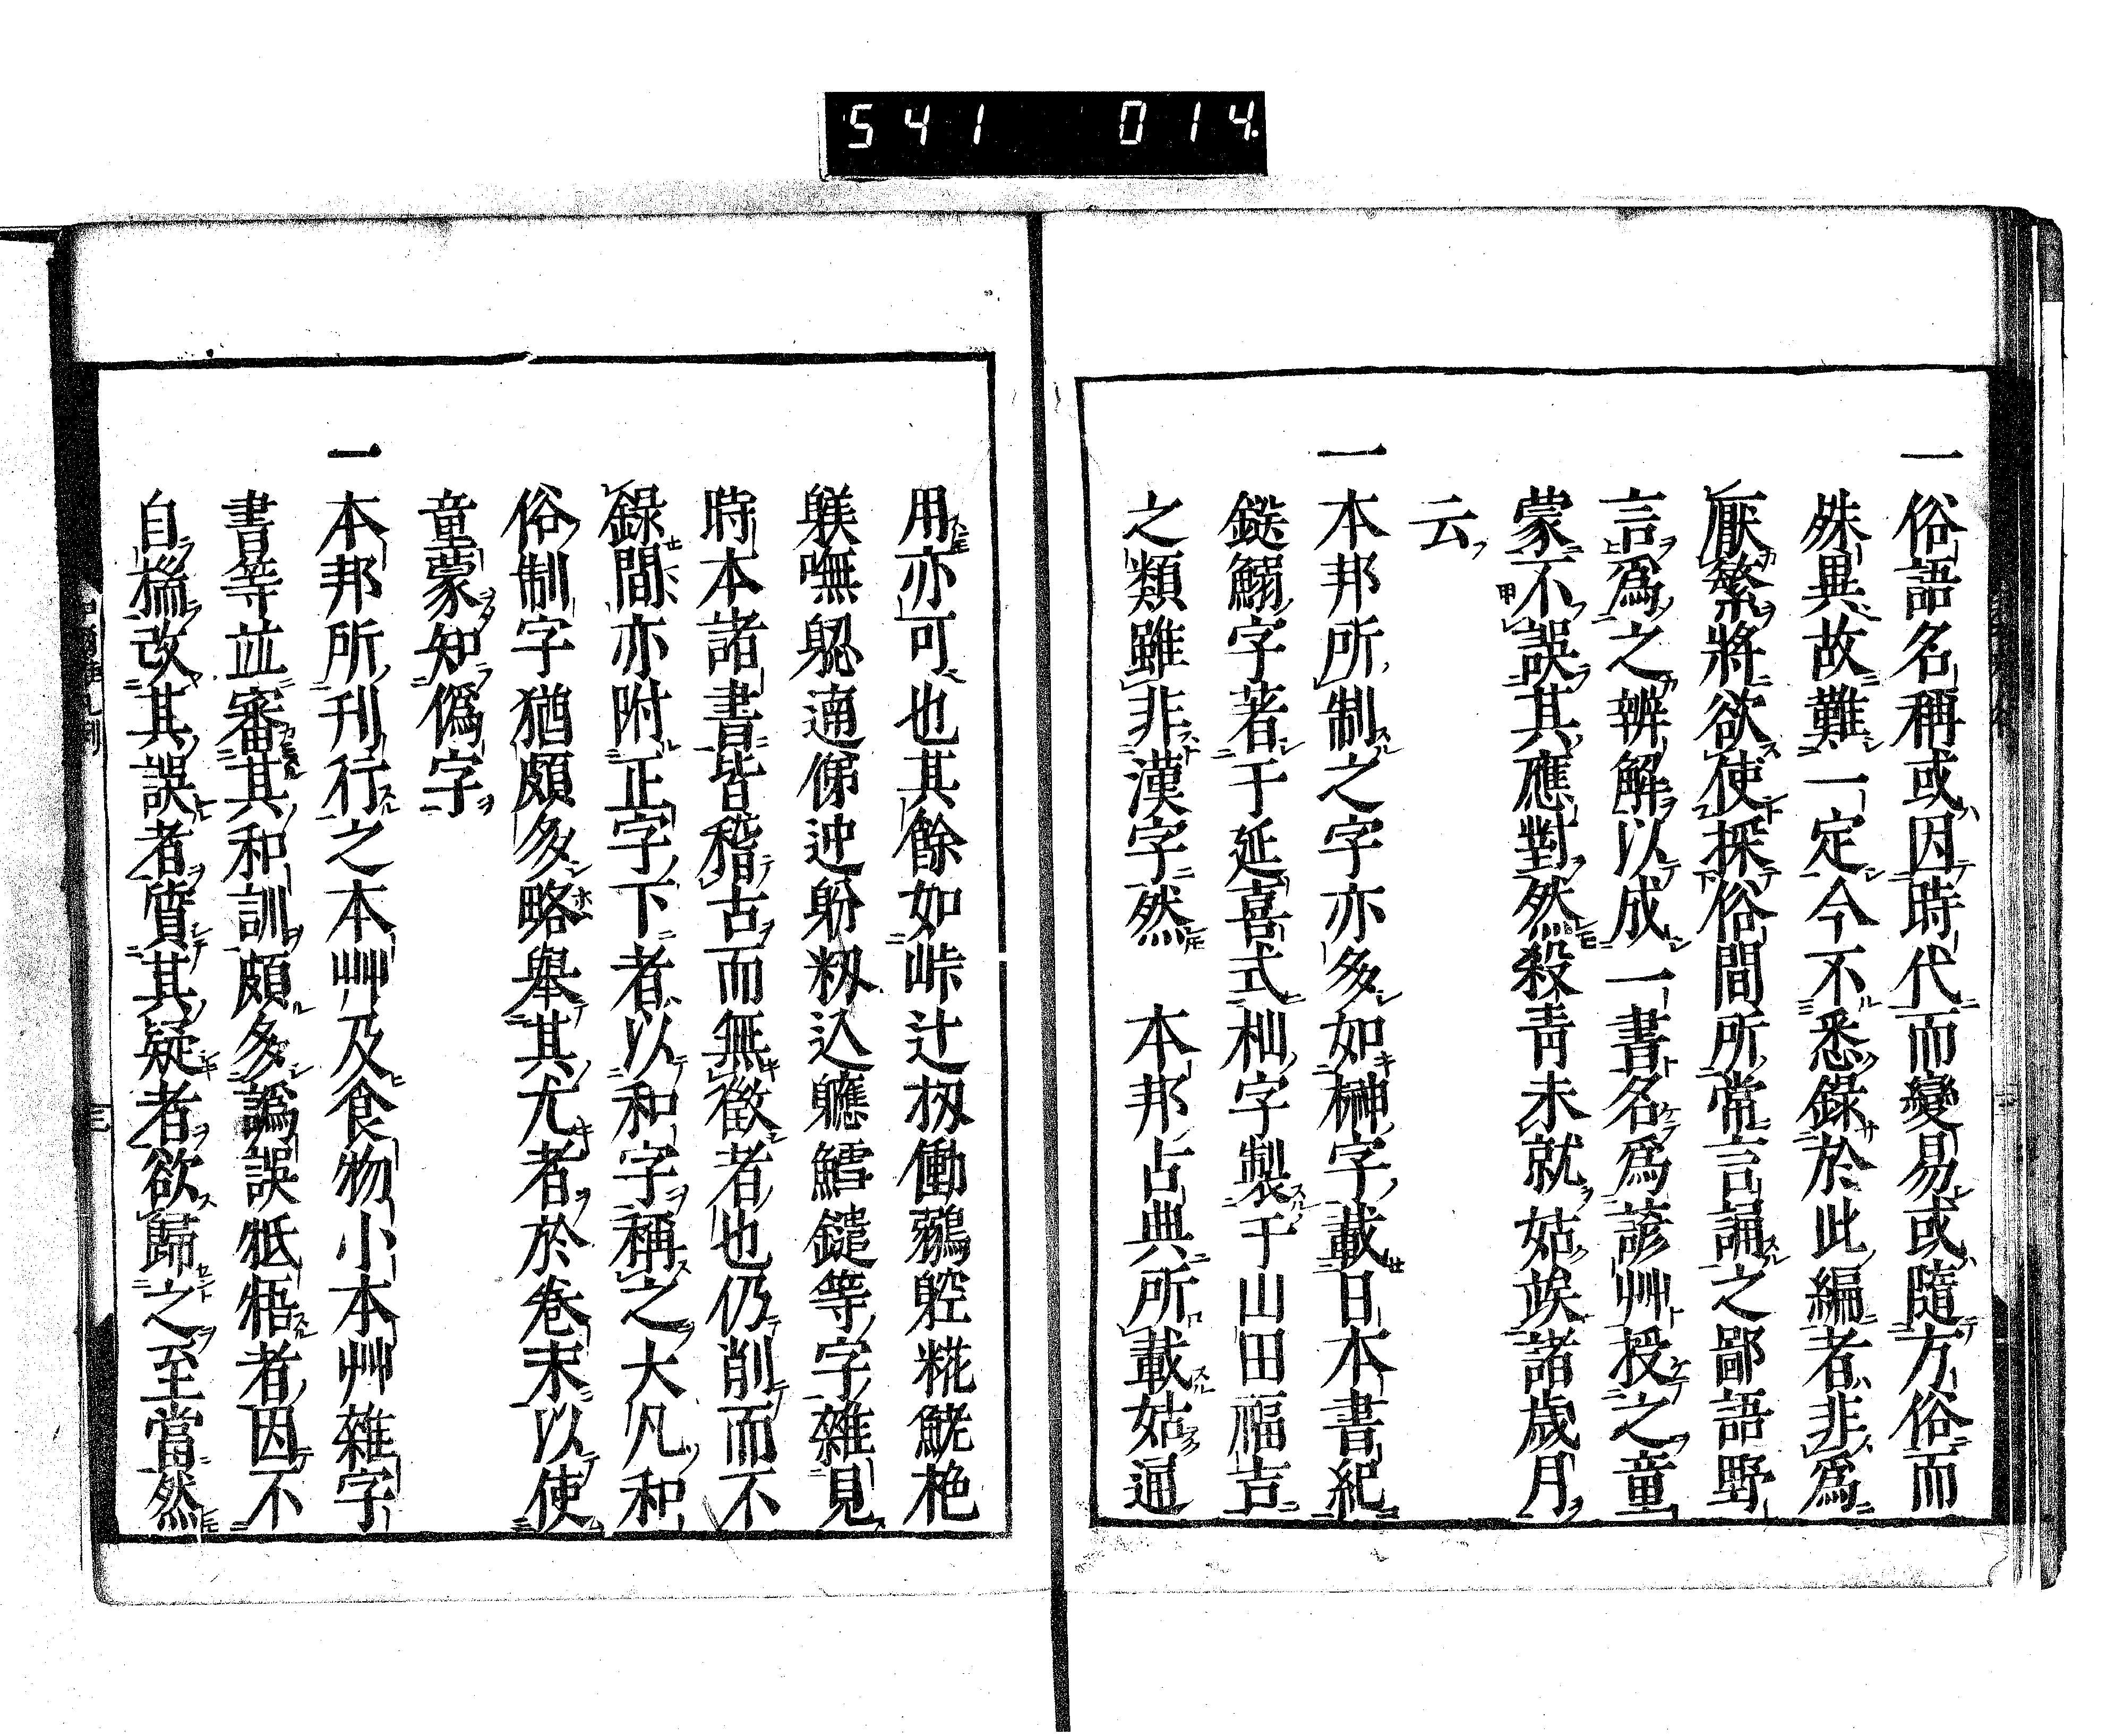 541 014.
一俗語名稱或因時代而變易或隨方俗而
殊異故難一定今不悉錄於此編者非爲
厭繁將欲使採俗間所常言誦之鄙語野
言爲之辨解以成一書名爲諺艸授之童
蒙不誤其應對然殺靑未就姑竢諸歲月
云
一本邦所制之字亦多如榊字載日本書紀
鎹鰯字著于延喜式杣字製于山田福吉
之類雖非漢字然 本邦古典所載姑通
用亦可也其餘如峠辻扨働鵐躮糀鮱栬
躾嘸 俤迚躮籾込軈鱈鑓等字雜見
時本諸書皆稽古而無徵者也仍削而不
錄間亦附正字下者以和字稱之大凡和
俗制字猶頗多略舉其尤者於卷末以使
童蒙知僞字
一本邦所刊行之本艸及食物小本艸雜字
書等並審其和訓頗多譌誤牴牾者因不
自揣改其誤者質其疑者欲歸之至當然
三